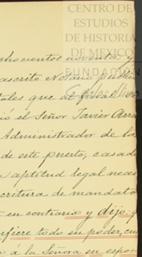 CENTRO DE
ESTUDIOS
DE HISTORIA
DE MEXICO
FUNDACIÓN
hocientos noventa y
ascrito Notario públi
tales que al final se
ció el Señor Javier Arra
Administrador de la
de este puerto, casado
aptitud legal nece
critura de mandato
en contrario y dijo:
fiere todo su poder, cum
a la Señora su espos